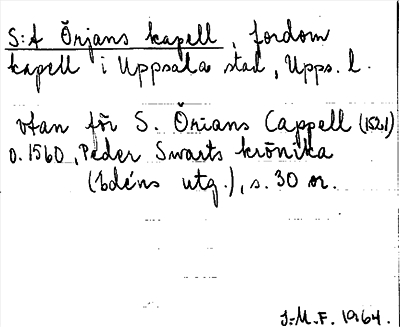 S:t Örjans kapell, fordom
kapell i Uppsala stad, Upps. l.
vtan för S. Örians Cappell (1521)
o. 1560, Peder Swarts krönika
(Edéns utg.), s. 30 or.
J.M.F. 1964.